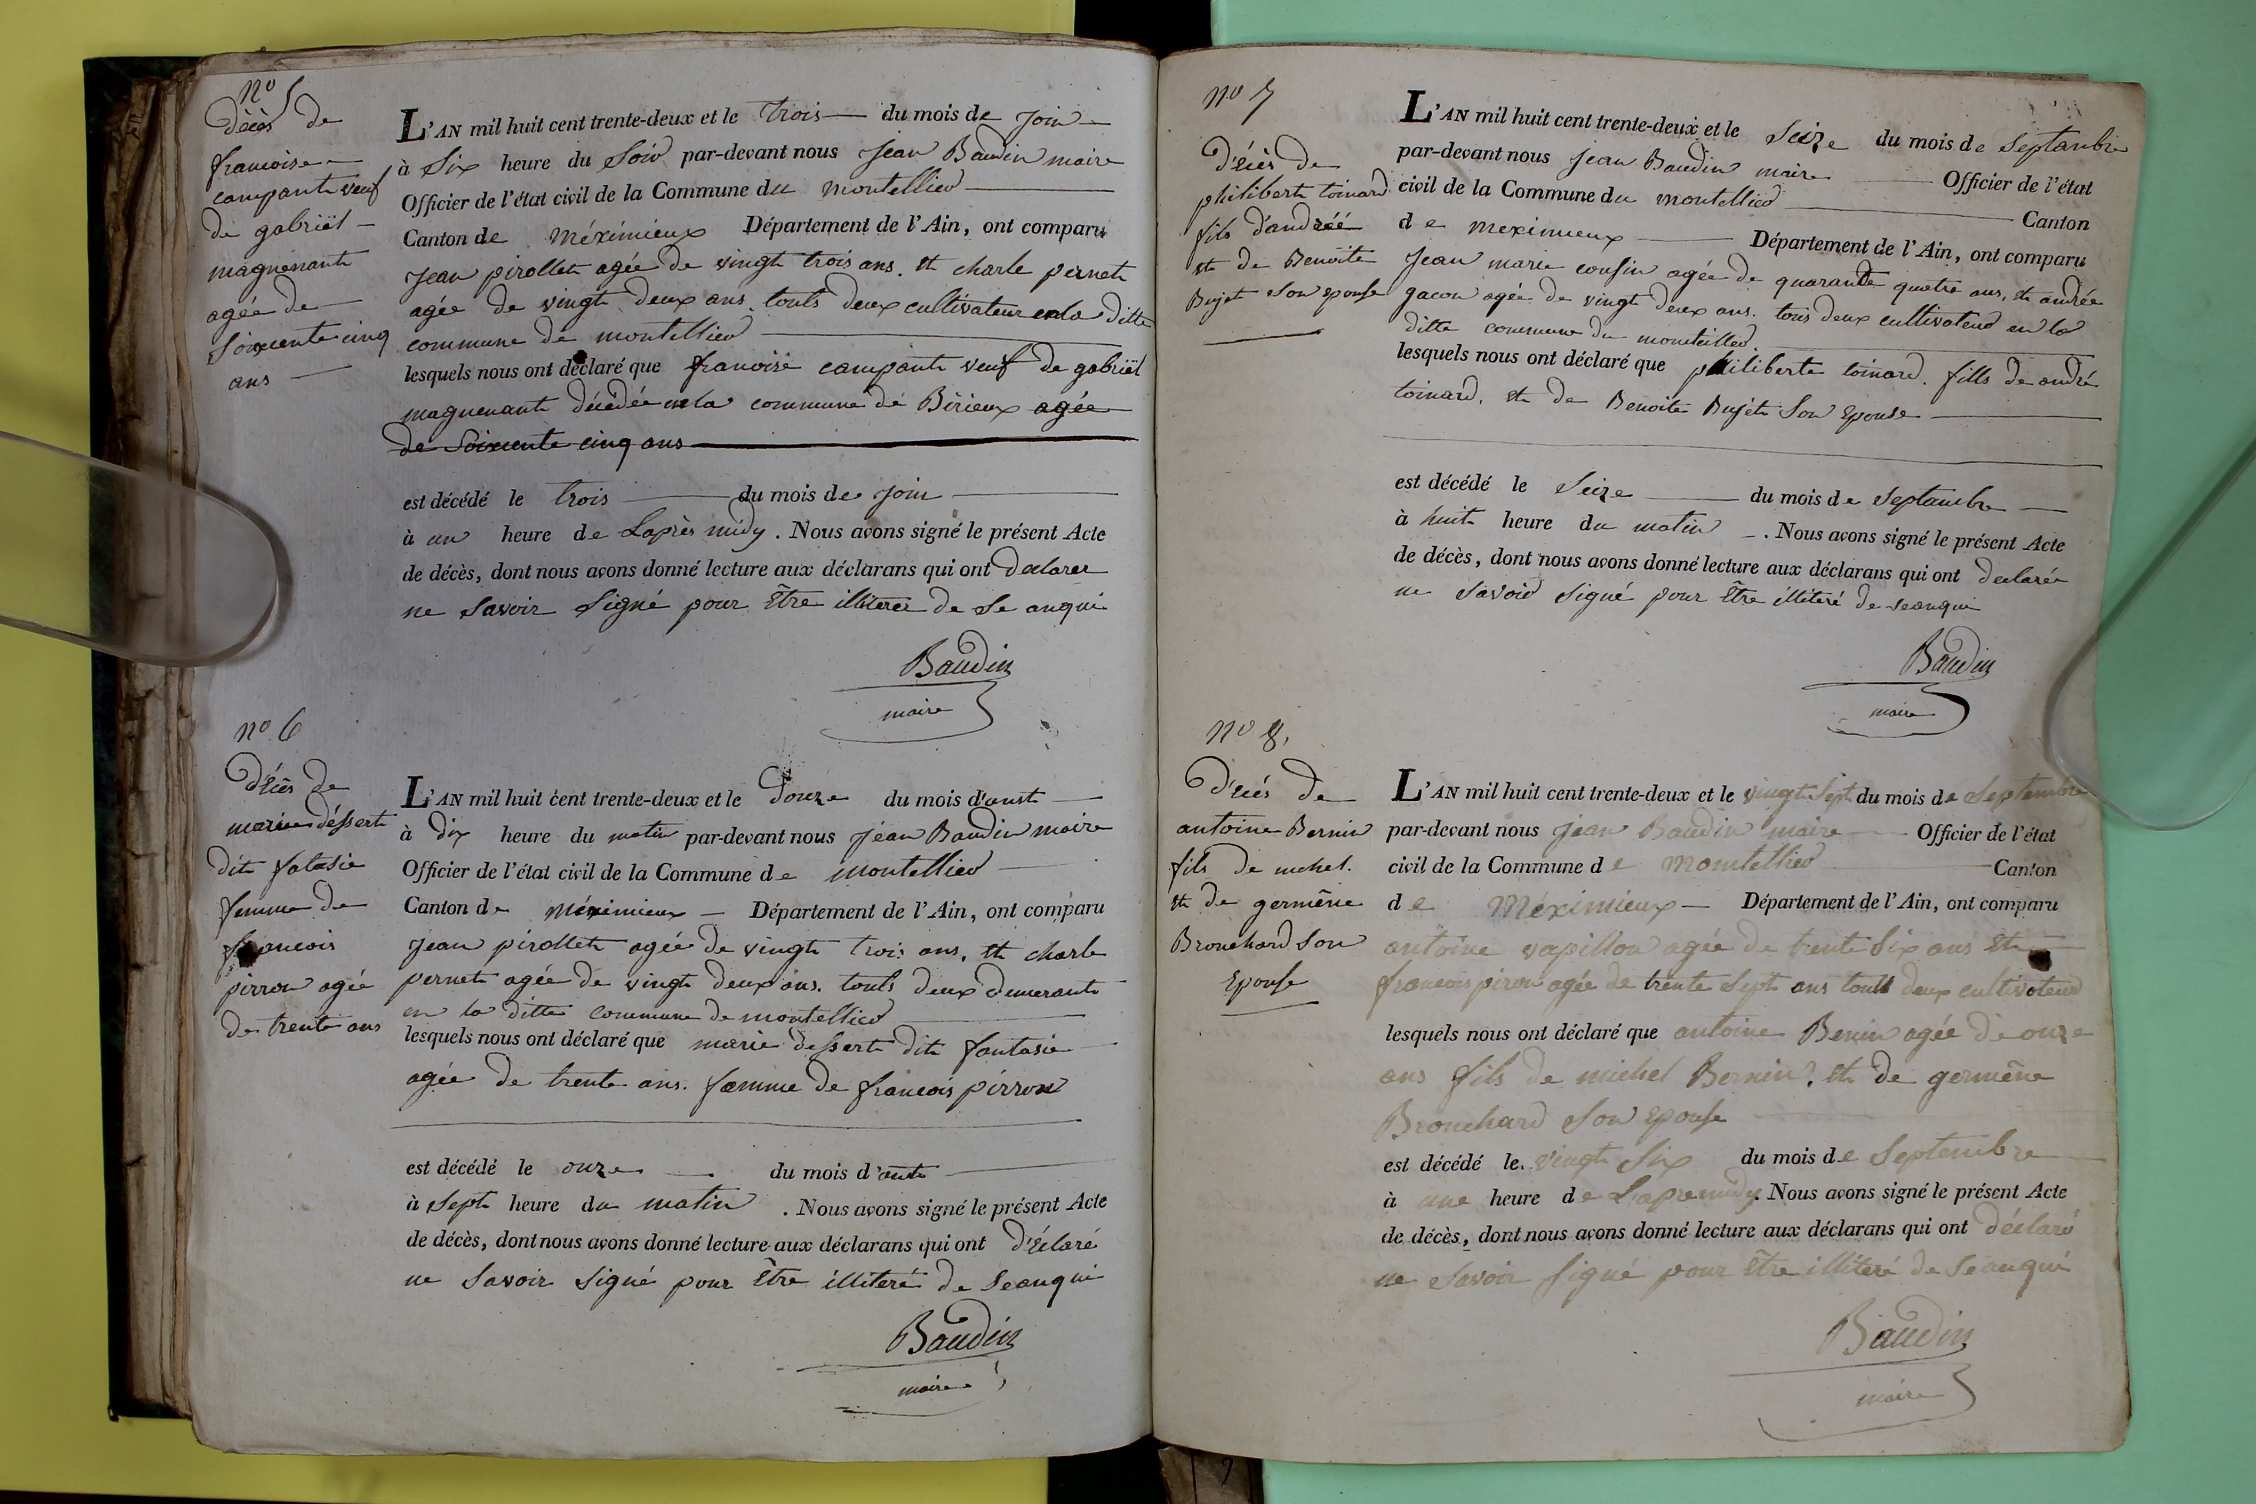 no 5
décès de
francoise
campant veuf
de gabriël
magnenant
agée de
Soixcente cinq
ans
L'AN mil huit cent trente-deux et le trois du mois de join
à Six heure du Soir par-devant nous Jean Baudin maire
Officier de l'état civil de la Commune du montellier
Canton de méximieux Département de l'Ain, ont comparu
Jean pirollet agée de vingt trois ans. et charle pernet
agée de vingt deux ans. touts deux cultivateur en la ditte
commune de montellier
lesquels nous ont déclaré que francoise campant veuf de gabriël
magnenant décédée en la commune de Birieux agée
de Soixcente cinq ans
est décédé le trois du mois de join
à un heure de Laprès midy. Nous avons signé le présent Acte
de décès, dont nous avons donné lecture aux déclarans qui ont declarer
ne Savoir Signé pour Être illiteré de Se anqui
Baudin
maire
no 6
Décès de
marie déssert
dit fatasie
femme de
francois
pirron agée
de trente ans
L'AN mil huit cent trente-deux et le Douze du mois d'aust
à dix heure du matin par-devant nous Jéan Baudin maire
Officier de l'état civil de la Commune de montellier
Canton de méximieux Département de l'Ain, ont comparu
Jean pirollet agée de vingt trois ans. et charle
pernet agée de vingt deux ans. touts deux demerant
en la ditte commune de montellier
lesquels nous ont déclaré que marie dessert dit fantasie
agée de trente ans. fæmme de francois pirron
est décédé le onze du mois d'aute
à Sept heure du matin. Nous avons signé le présent Acte
de décès, dont nous avons donné lecture aux déclarans qui ont déclaré
ne Savoir Signé pour Être illiteré de Seanqui
Baudin
maire
no 7
Décès de
philibert toinard
fils d'andréé
et de Benoite
Bujet Son Epouse
L'AN mil huit cent trente-deux et le Seize du mois de Septanbre
par-devant nous Jean Baudin maire Officier de l'état
civil de la Commune du montellier Canton
de meximieux Département de l'Ain, ont comparu
Jean marie cousin agée de quarante quatre ans, et andrée
gacon agée de vingt deux ans. tous deux cultivateur en la
ditte commune du monteiller.
lesquels nous ont déclaré que philiberte toinard. fills de andré
toinard. et de Benoite Bujet Son Epouse
est décédé le Seize du mois de Septanbre
à huit heure du matin. Nous avons signé le présent Acte
de décès, dont nous avons donné lecture aux déclarans qui ont declarée
ne Savoir Signé pour Être illiteré de seanqui
Baudin
maire
no 8.
Décés de
antoine Bernin
fils de michel.
et de germêne
Bronchard Son
Epouse
L'AN mil huit cent trente-deux et le vingt Sept du mois de Septembre
par-devant nous Jean Baudin maire Officier de l'état
civil de la Commune de Montellier Canton
de Méximieux Département de l'Ain, ont comparu
antoine vapillon agée de trente Six ans et
francois piron agée de trente Sept ans tout deux cultivateur
lesquels nous ont déclaré que antoine Bernin agée de onze
ans fils de michel Bernin. et de germêne
Bronchard Son Epouse
est décédé le vingt Six du mois de Septembre
à une heure de Lapremidy. Nous avons signé le présent Acte
de décès, dont nous avons donné lecture aux déclarans qui ont déclaré
ne Savoir Signé pour Être illiteré de Seanqui
Baudin
maire